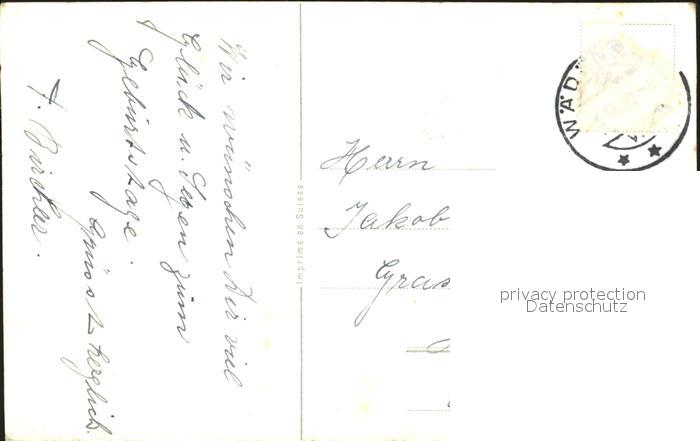 Wir wünschen Dir viel
Glück u. Segen zum
Geburtstage.
Grüsst herzlich
F. Birchler.
Imprimé en Suisse
Herrn
Jakob
Gras
WÄD
privacy protection
Datenschutz